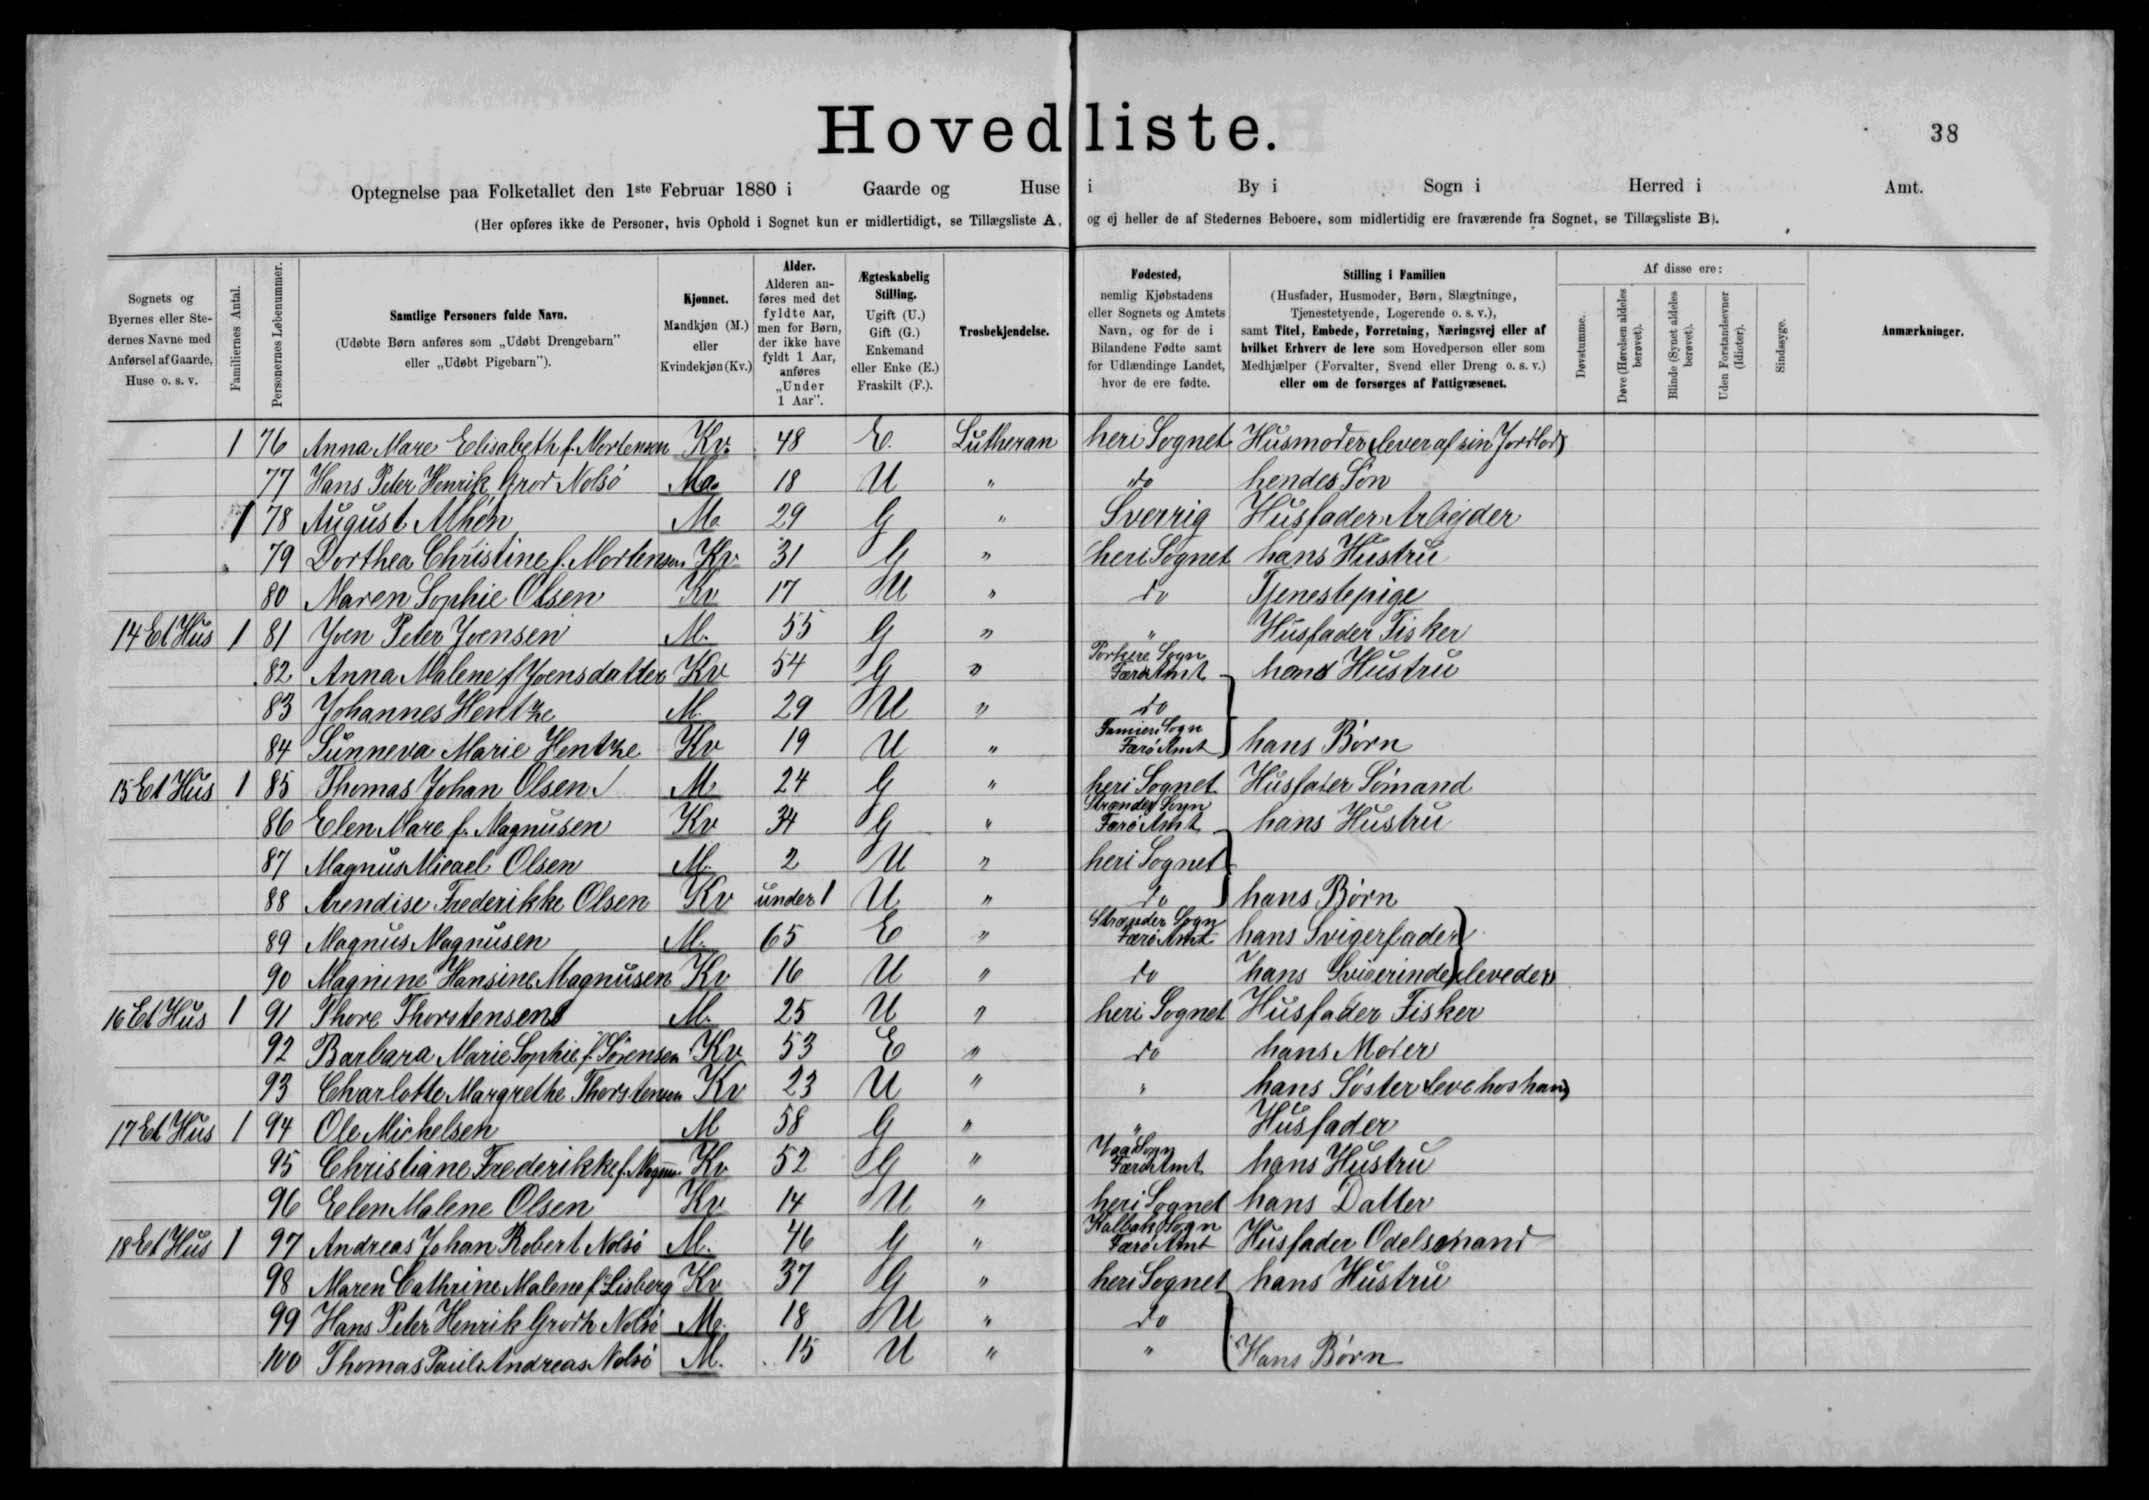 Hovedliste.
38
Optegnelse paa Folketallet den 1ste Februar 1880 i Gaarde og Huse i By i Sogn i Herred i Amt.
(Her opføres ikke de Personer, hvis Ophold i Sognet kun er midlertidigt, se Tillægsliste A, og ej heller de af Stedernes Beboere, som midlertidig ere fraværende fra Sognet, se Tillægsliste B).
Sognets og Byernes eller Stedernes Navne med Anførsel af Gaarde, Huse o. s. v.
Familiernes Antal.
Personernes Løbenummer.
Samtlige Personers fulde Navn.
(Udøbte Børn anføres som „Udøbt Drengebarn” eller „Udøbt Pigebarn”).
Kjønnet.
Mandkjøn (M.) eller Kvindekjøn (Kv.)
Alder.
Alderen anføres med det fyldte Aar, men for Børn, der ikke have fyldt 1 Aar, anføres „Under 1 Aar”.
Ægteskabelig Stilling.
Ugift (U.) Gift (G.) Enkemand eller Enke (E.) Fraskilt (F.).
Trosbekjendelse.
Fødested,
nemlig Kjøbstadens eller Sognets og Amtets Navn, og for de i Bilandene Fødte samt for Udlændinge Landet, hvor de ere fødte.
Stilling i Familien
(Husfader, Husmoder, Børn, Slægtninge, Tjenestetyende, Logerende o. s. v.), samt Titel, Embede, Forretning, Næringsvej eller af hvilket Erhverv de leve som Hovedperson eller som Medhjælper (Forvalter, Svend eller Dreng o. s. v.) eller om de forsørges af Fattigvæsenet.
Af disse ere:
Døvstumme.
Døve (Hørelsen aldeles berøvet).
Blinde (Synet aldeles berøvet).
Uden Forstandsevner (Idioter).
Sindssyge.
Anmærkninger.
1 76 Anna Mare Elisabeth f. Mortensen Kv. 48 E. Lutheran heri Sognet Husmoder (lever af sin Jordlod)
77 Hans Peter Henrik Grod Nolsö Ma. 18 U " do hendes Søn
1 78 August Alhén M. 29 G " Sverrig Husfader Arbejder
79 Dorthea Christine f. Mortensen Kv. 31 G " heri Sognet hans Hustru
80 Maren Sophie Olsen Kv 17 U " do Tjenestepige
14 Et Hus 1 81 Joen Peter Joensen M. 55 G " " Husfader Fisker
82 Anna Malene f Joensdatter Kv 54 G " Porkere Sogn Færø Amt hans Hustru
83 Johannes Hentze M. 29 U " do
84 Sunneva Marie Hentze Kv 19 U " Famien Sogn Færø Amt hans Børn
15 Et Hus 1 85 Thomas Johan Olsen M. 24 G " heri Sognet Husfader Sömand
86 Elen Mare f. Magnusen Kv 34 G " Strænder Sogn Færø Amt hans Hustru
87 Magnus Micael Olsen M. 2 U " heri Sognet
88 Arendise Frederikke Olsen Kv under 1 U " do hans Børn
89 Magnus Magnusen M. 65 E " Strænder Sogn Færø Amt hans Svigerfader
90 Magnine Hansine Magnusen Kv 16 U " do hans Svigerinde
16 Et Hus 1 91 Thore Thorstensen M. 25 U " heri Sognet Husfader Fisker
92 Barbara Marie Sophie f. Sörensen Kv 53 E " do hans Moder
93 Charlotte Margrethe Thorstensen Kv 23 U " " hans Söster leve hos ham
17 Et Hus 1 94 Ole Michelsen M 58 G " " Husfader
95 Christiane Frederikke f. Kv 52 G " Vaa Sogn Færø Amt hans Hustru
96 Elen Malene Olsen Kv 14 U " heri Sognet hans Datter
18 Et Hus 1 97 Andreas Johan Robert Nolsö M. 46 G " Kalbak Sogn Færø Amt Husfader Odelsmand
98 Maren Cathrine Malene f. Lisberg Kv 37 G " heri Sognet hans Hustru
99 Hans Peter Henrik Groth Nolsö M. 18 U " do
100 Thomas Pauli Andreas Nolsö M. 15 U " " Hans Børn